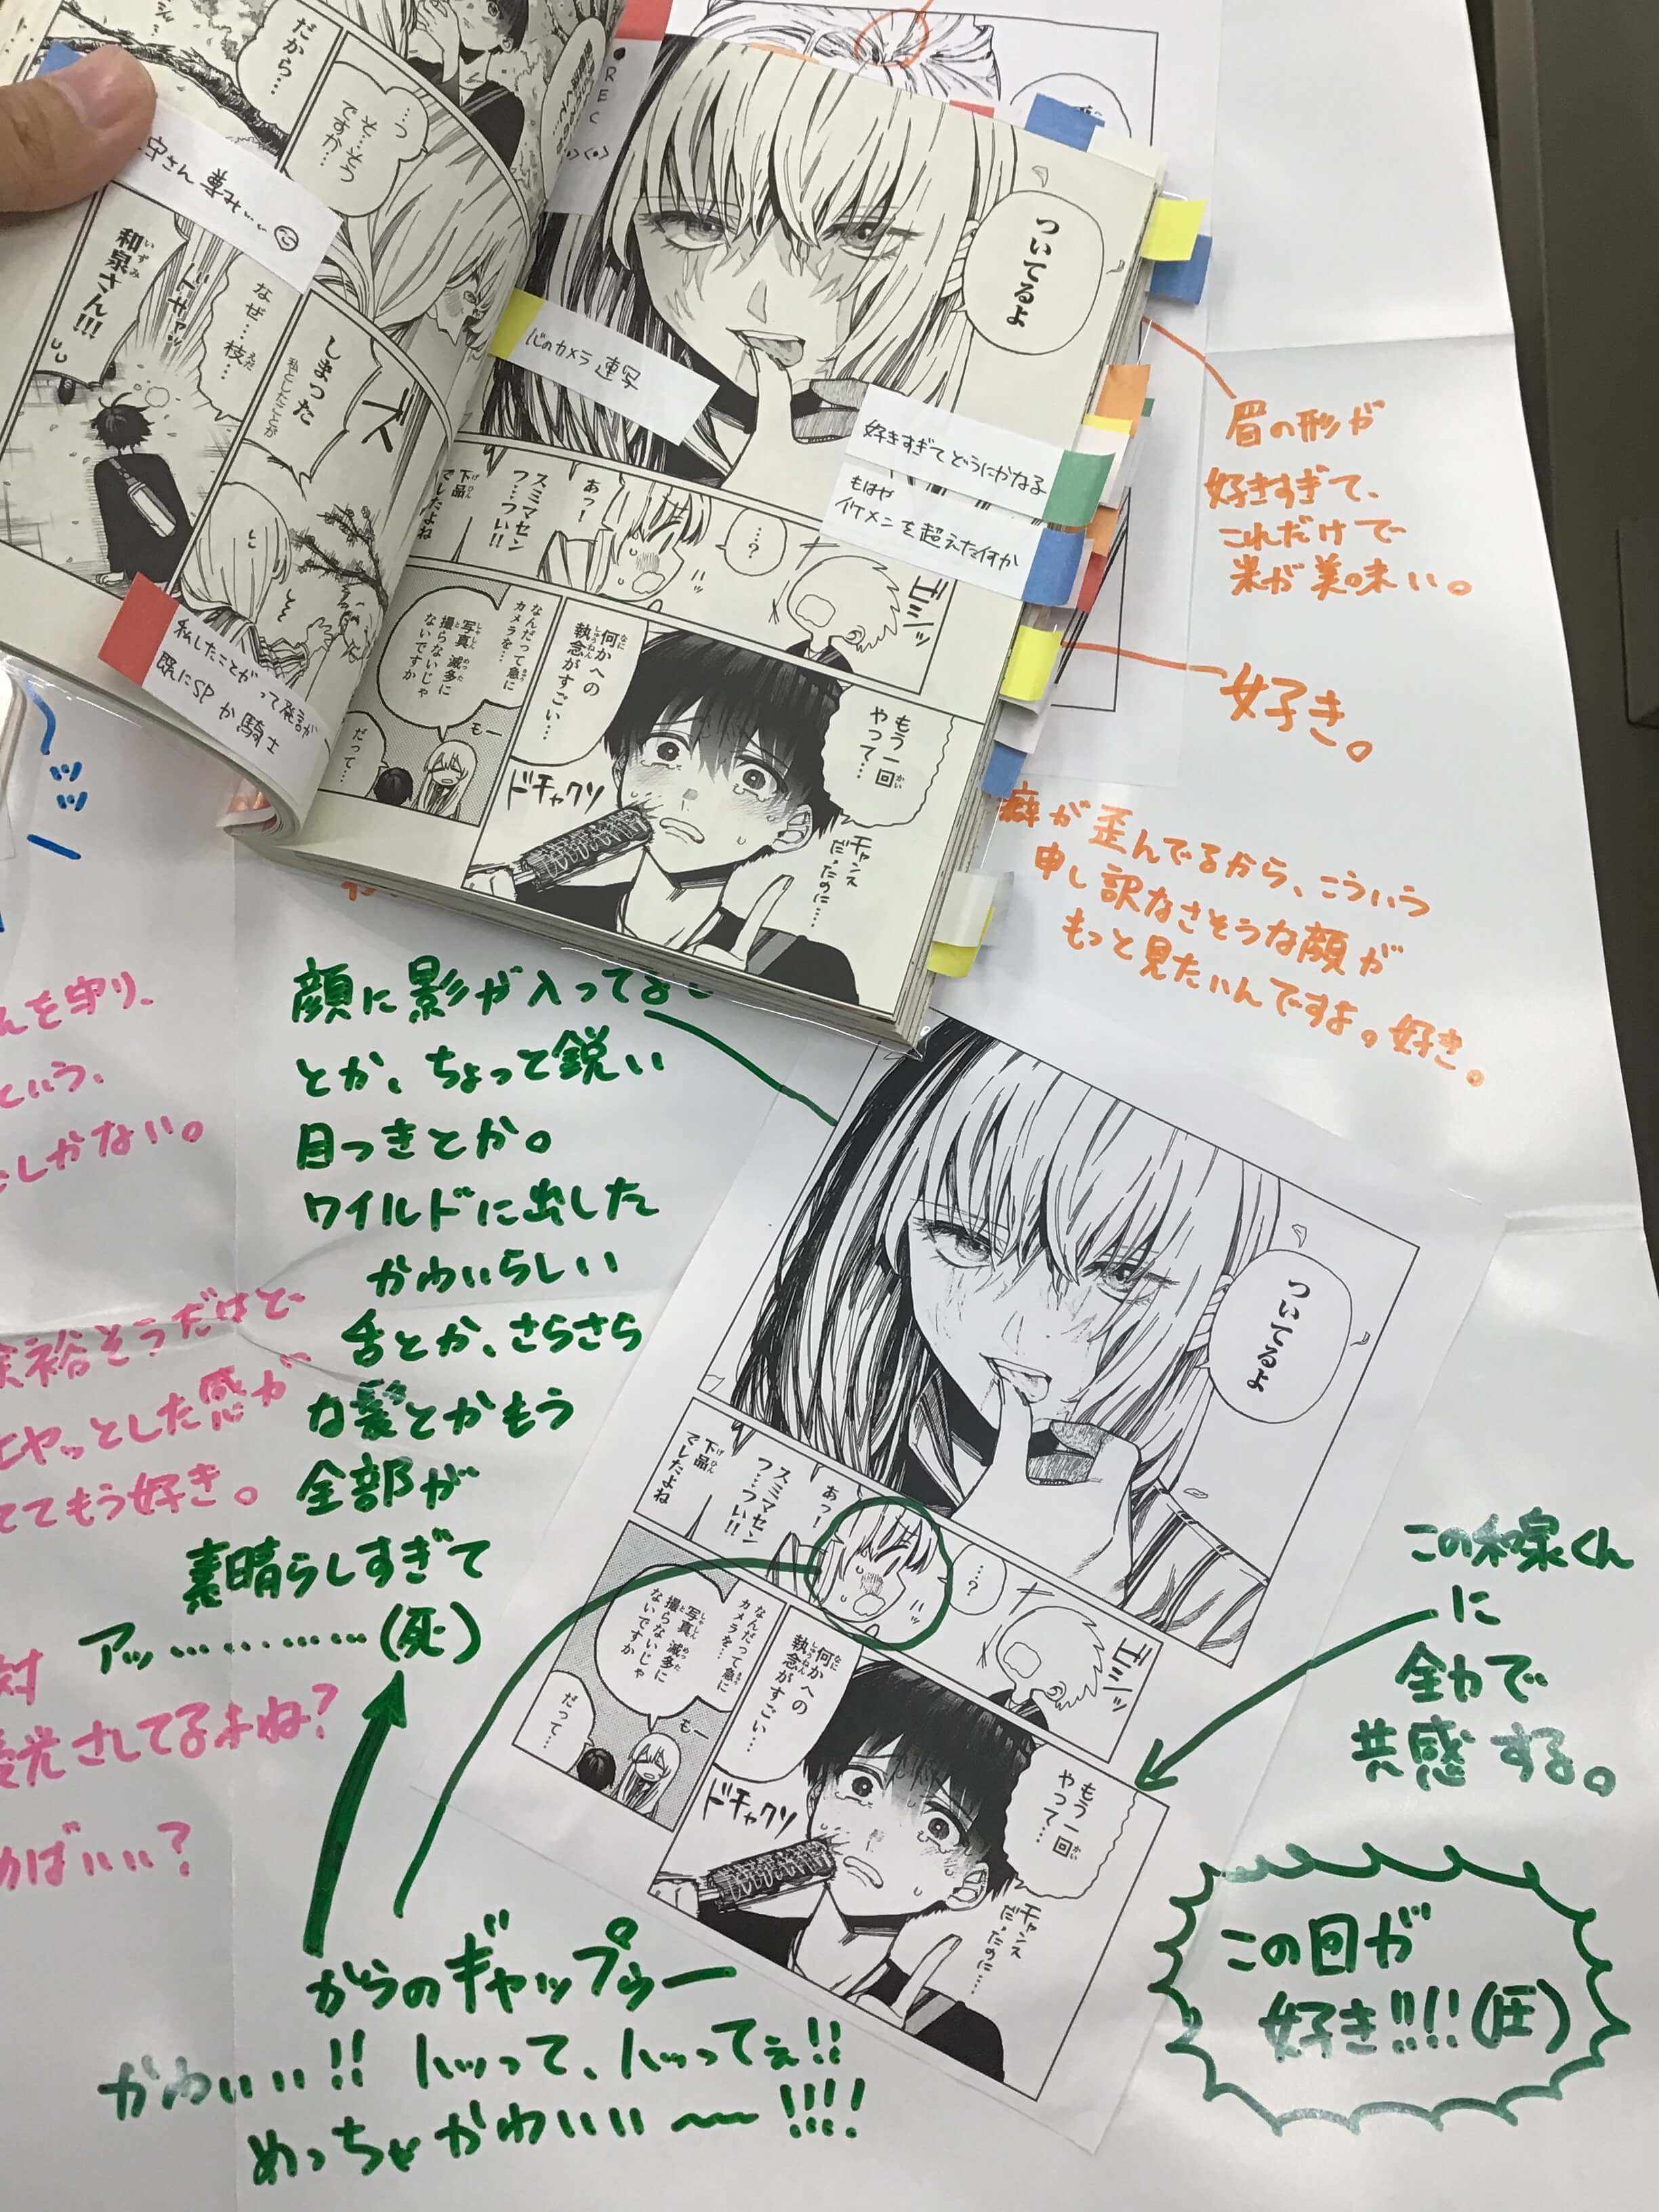 だから…
…っ
そ…そう
ですか…
守さん 尊みぃぃ
和泉さん!!!
いずみ
ドサッ
なぜ…枝…
えだ
しまった
私としたことが
ズ
私したことがって発言が
既にSP か 騎士
REC
ついてるよ
心のカメラ 連写
好きすぎて どうにかなる
もはや
イケメン を 超えた何か
ゴシッ
…?
あっ!
スミマセン
つ…つい!!
下品
げひん
でしたよね
なんだって急に
カメラを…
写真 滅多に
しゃしん めった
撮らないじゃ
と
ないですか
もー
だって…
何かへの
なに
執念がすごい…
しゅうねん
もう一回
かい
やって…
チャンス
だったのに…
ドチャクソ
眉の形が
好きすぎて、
これだけで
米が美味い。
好き。
癖が歪んでるから、こういう
申し訳なさそうな顔が
もっと見たいんですよ。好き。
んを守り、
という、
しかない。
余裕そうだけど、
ヤッとした感が
ててもう好き。
対
光されてるよね?
めばいい?
顔に影が入ってる
とか、ちょっと鋭い
目つきとか。
ワイルドに出した
かわいらしい
舌とか、さらさら
な髪とかもう
全部が
素晴らしすぎて
アッ…………(死)
ついてるよ
ゴシッ
…?
あっ!
スミマセン
つ…つい!!
下品
げひん
でしたよね
なんだって急に
カメラを…
写真 滅多に
しゃしん めった
撮らないじゃ
と
ないですか
もー
だって…
何かへの
なに
執念がすごい…
しゅうねん
もう一回
かい
やって…
チャンス
だったのに…
ドチャクソ
この和泉くん
に
全力で
共感する。
この回が
好き!!!!(圧)
からのギャップゥー
かわいい!! ハッって、ハッってぇ!!
めっちゃかわいい〜〜!!!!